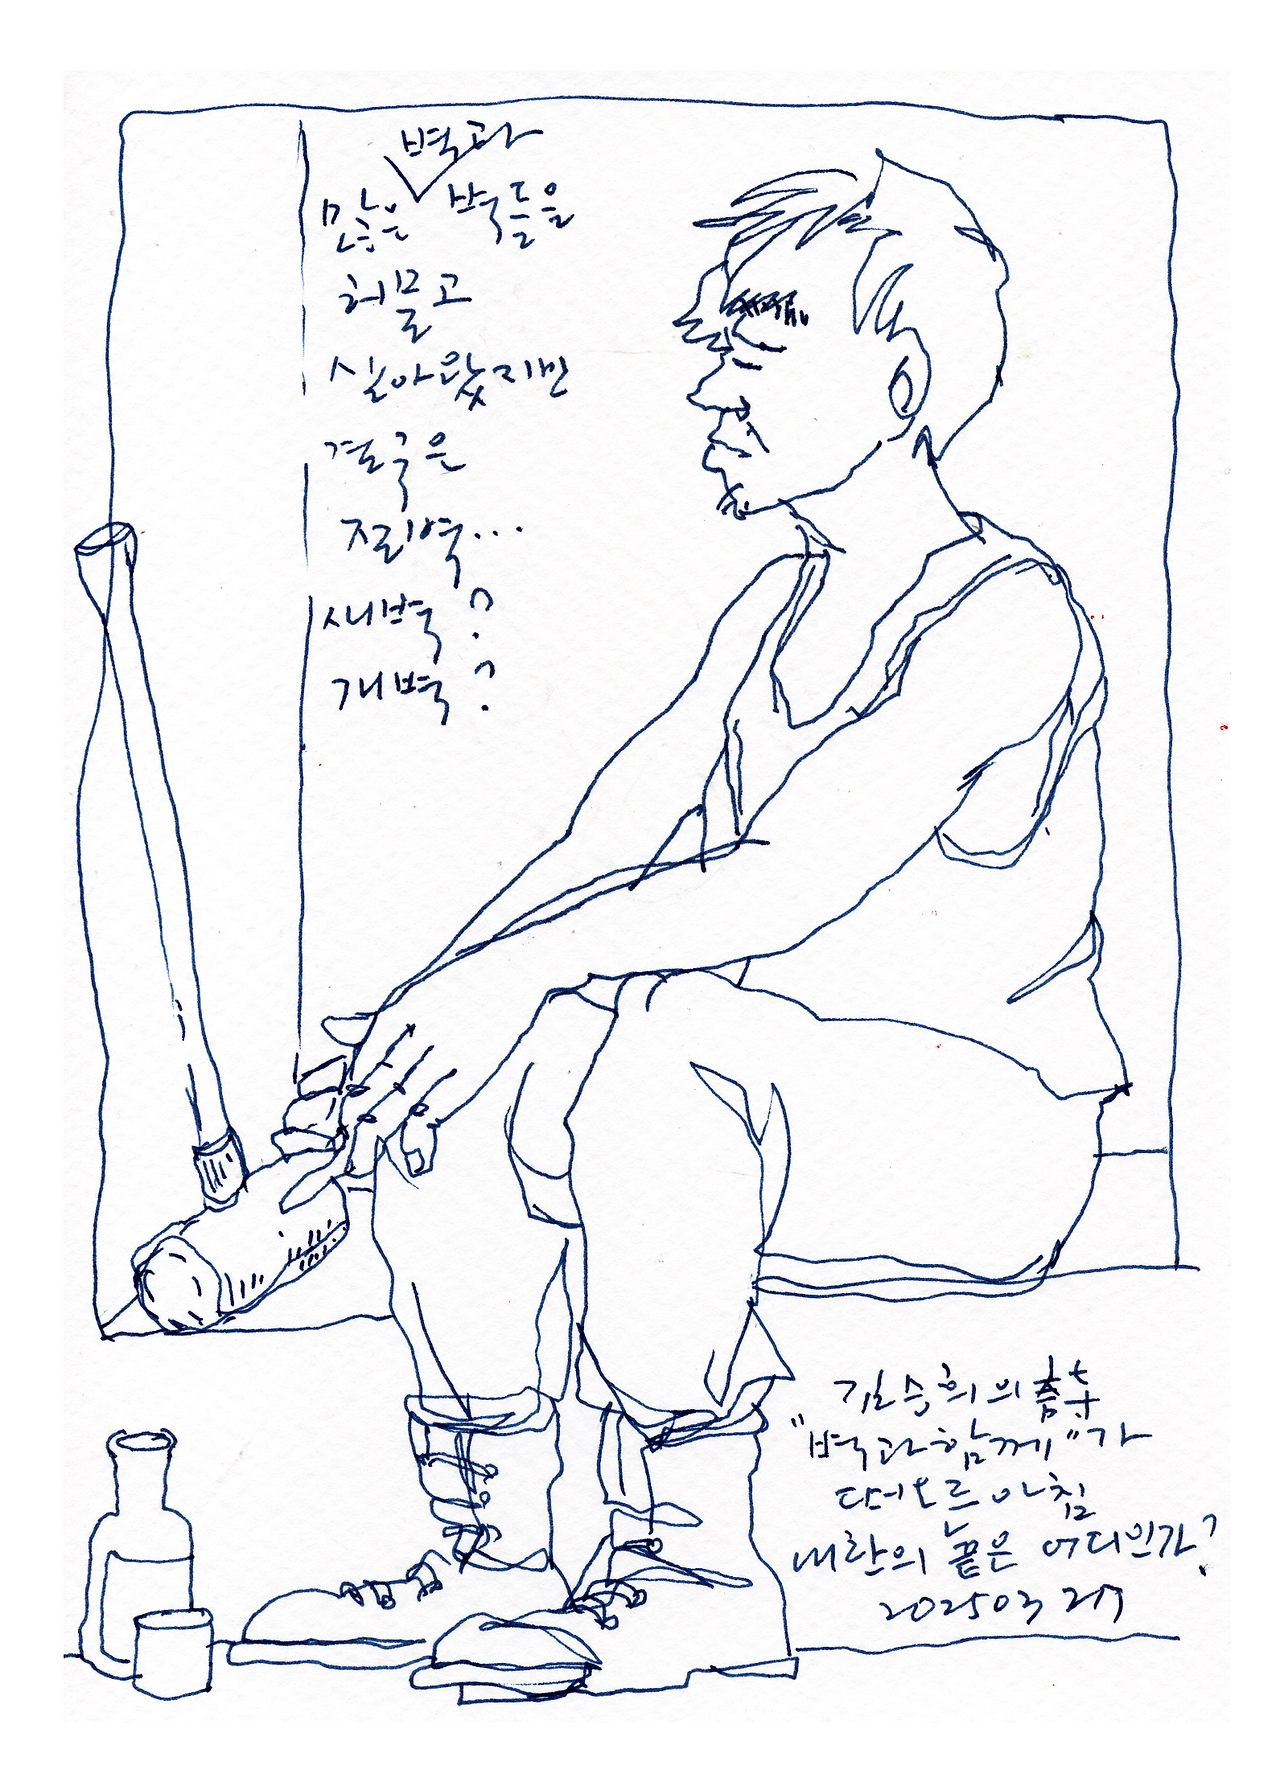 벽과
많은 벽들을
허물고
살아왔지만
결국은
절벽...
새벽?
개벽?
김승희의 詩
"벽과함께"가
떠오른 아침
내란의 끝은 어디인가?
20250327